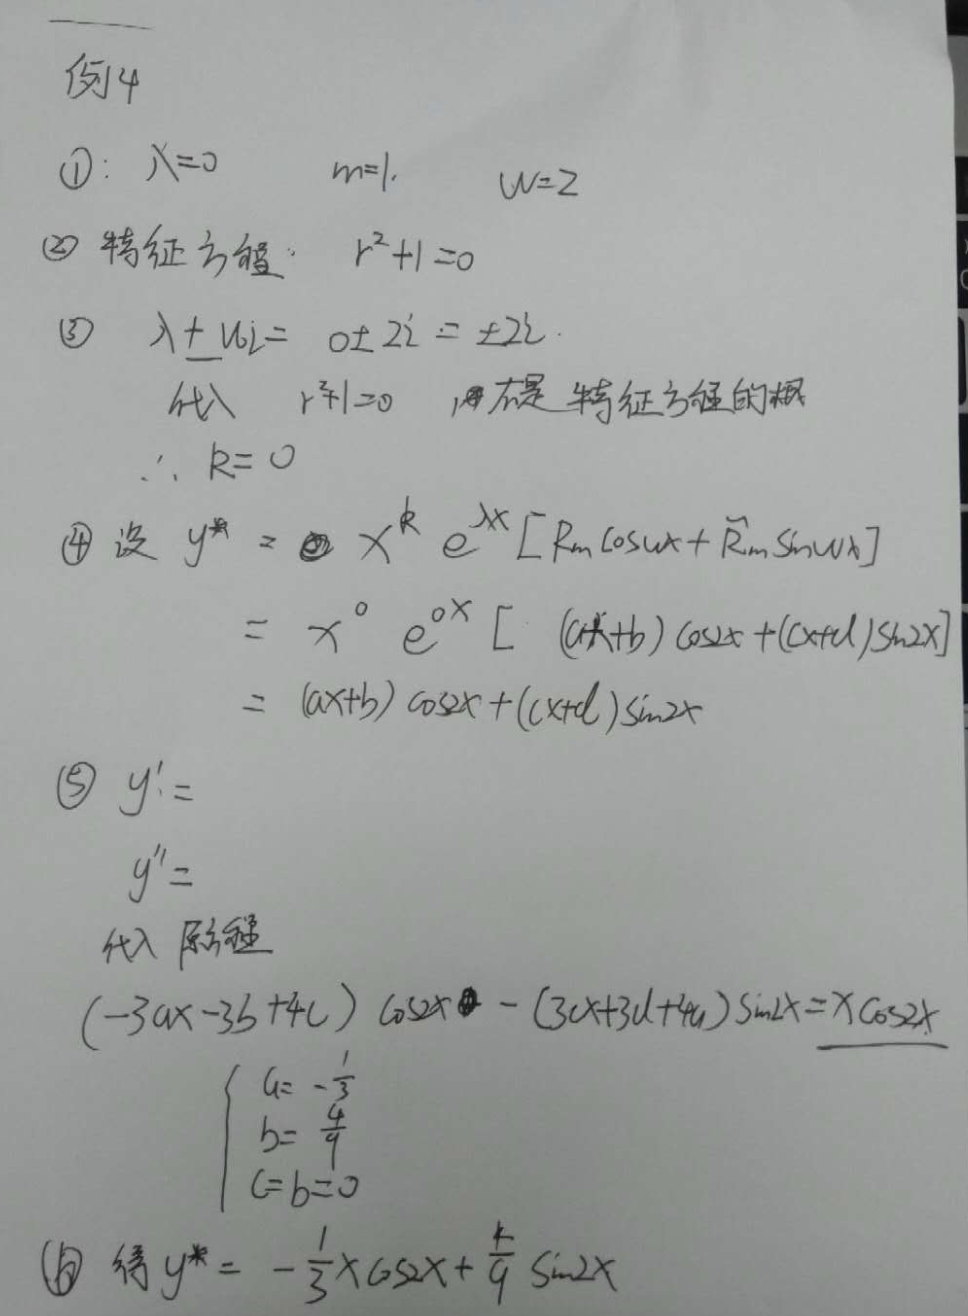 例4
①: λ=0 m=1. w=2
② 特征方程. r²+1=0
③ λ±wi= 0±2i = ±2i.
代入 r²+1=0 , 不是特征方程的根
∴ k=0
④ 设 y* = x^k e^{λx} [Rm cos wx + R̃m sin wx]
= x^0 e^{0x} [ (ax+b) cos2x + (cx+d) sin2x]
= (ax+b) cos2x + (cx+d) sin2x
⑤ y'=
y''=
代入 原方程
(-3ax-3b+4c) cos2x - (3cx+3d+4a) sin2x = x cos2x
a= -1/3
b= 4/9
c=b=0
⑥ 得 y* = -1/3 x cos2x + 4/9 sin2x